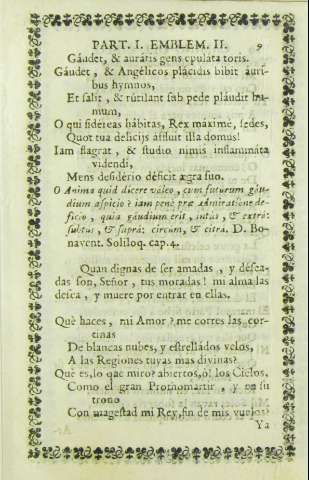 PART. I. EMBLEM. II. 9
Gáudet, & aurátis gens epulata toris.
Gáudet, & Angélicos plácidis bibit auri-
bus hymnos,
Et salit, & rútilant sub pede pláudit hu-
mum,
O qui sidéreas hábitas, Rex máxime, sedes,
Quot tua delicijs áffluit illa domus!
Iam flagrat, & studio nimis inflammáta
videndi,
Mens desidério déficit ægra suo.
O Anima quid dicere valeo, cum futurum gáu-
dium aspicio? iam penè præ Admiratione de-
ficio, quia gáudium erit, intús, & extrá:
subtus, & suprá: circum, & citra. D. Bo-
navent. Soliloq. cap. 4.
Quan dignas de ser amadas, y desea-
das son, Señor, tus moradas! mi alma las
desea, y muere por entrar en ellas.
Què haces, mi Amor? me corres las cor-
tinas
De blancas nubes, y estrelládos velos,
A las Regiones tuyas mas divinas?
Què es, lo que miro? abiertos, ò! los Cielos,
Como el gran Prothomartir, y en su
trono
Con magestad mi Rey, fin de mis vuelos?
Ya